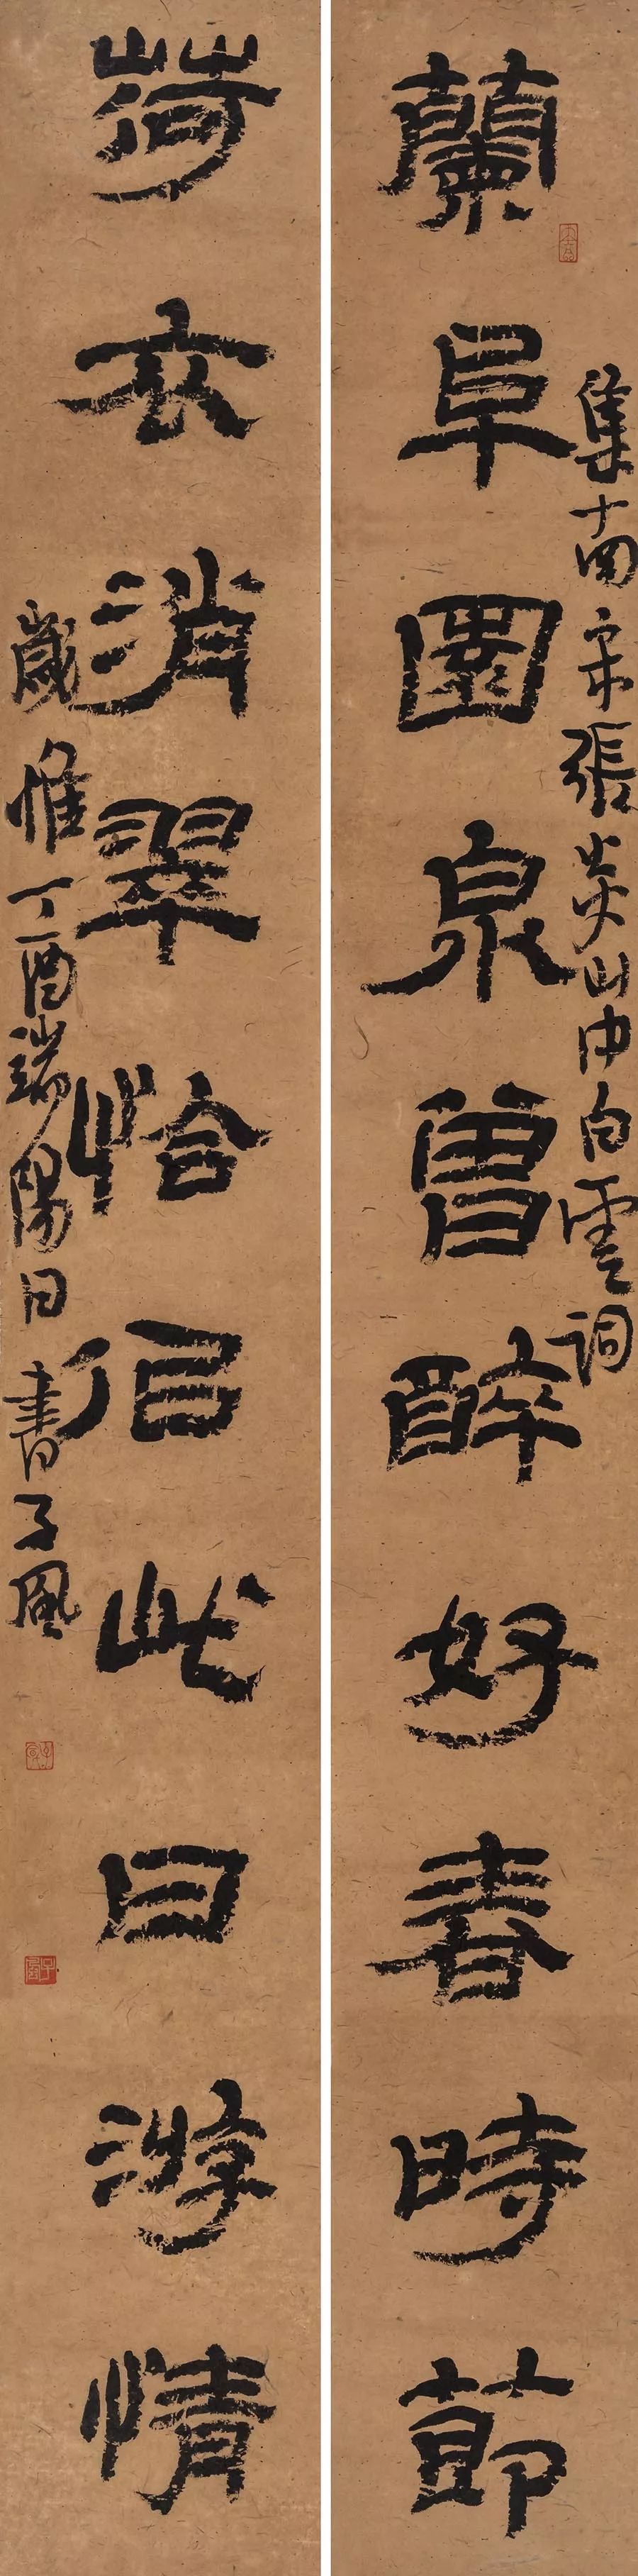 蘭阜園泉曾醉好春時節
集南宋張炎山中白雲詞
荷衣消翠恰佀此日游情
歲惟丁酉端陽日書子風